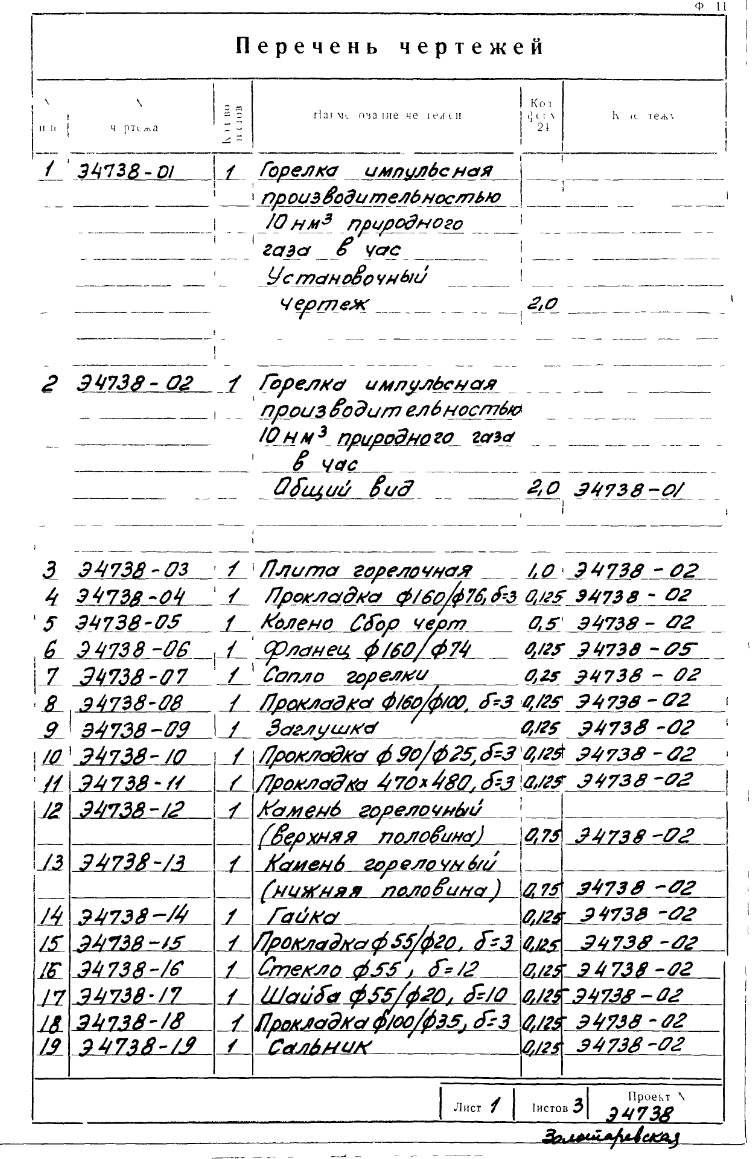 Ф 11
Перечень чертежей
N п п | N чертежа | Кол во листов | Наименование чертежей | Кол форм 24 | К чертежу
1 Э4738-01 1 Горелка импульсная
производительностью
10 нм³ природного
газа в час
Установочный
чертеж 2,0
2 Э4738-02 1 Горелка импульсная
производительностью
10 нм³ природного газа
в час
Общий вид 2,0 Э4738-01
3 Э4738-03 1 Плита горелочная 1,0 Э4738-02
4 Э4738-04 1 Прокладка ф160/ф76, δ=3 0,125 Э4738-02
5 Э4738-05 1 Колено Сбор черт 0,5 Э4738-02
6 Э4738-06 1 Фланец ф160/ф74 0,125 Э4738-05
7 Э4738-07 1 Сопло горелки 0,25 Э4738-02
8 Э4738-08 1 Прокладка ф160/ф100, δ=3 0,125 Э4738-02
9 Э4738-09 1 Заглушка 0,125 Э4738-02
10 Э4738-10 1 Прокладка ф90/ф25, δ=3 0,125 Э4738-02
11 Э4738-11 1 Прокладка 470×480, δ=3 0,125 Э4738-02
12 Э4738-12 1 Камень горелочный
(верхняя половина) 0,75 Э4738-02
13 Э4738-13 1 Камень горелочный
(нижняя половина) 0,75 Э4738-02
14 Э4738-14 1 Гайка 0,125 Э4738-02
15 Э4738-15 1 Прокладка ф55/ф20, δ=3 0,125 Э4738-02
16 Э4738-16 1 Стекло ф55, δ=12 0,125 Э4738-02
17 Э4738-17 1 Шайба ф55/ф20, δ=10 0,125 Э4738-02
18 Э4738-18 1 Прокладка ф100/ф35, δ=3 0,125 Э4738-02
19 Э4738-19 1 Сальник 0,125 Э4738-02
Лист 1 Листов 3 Проект N
Э4738
Золотаревская